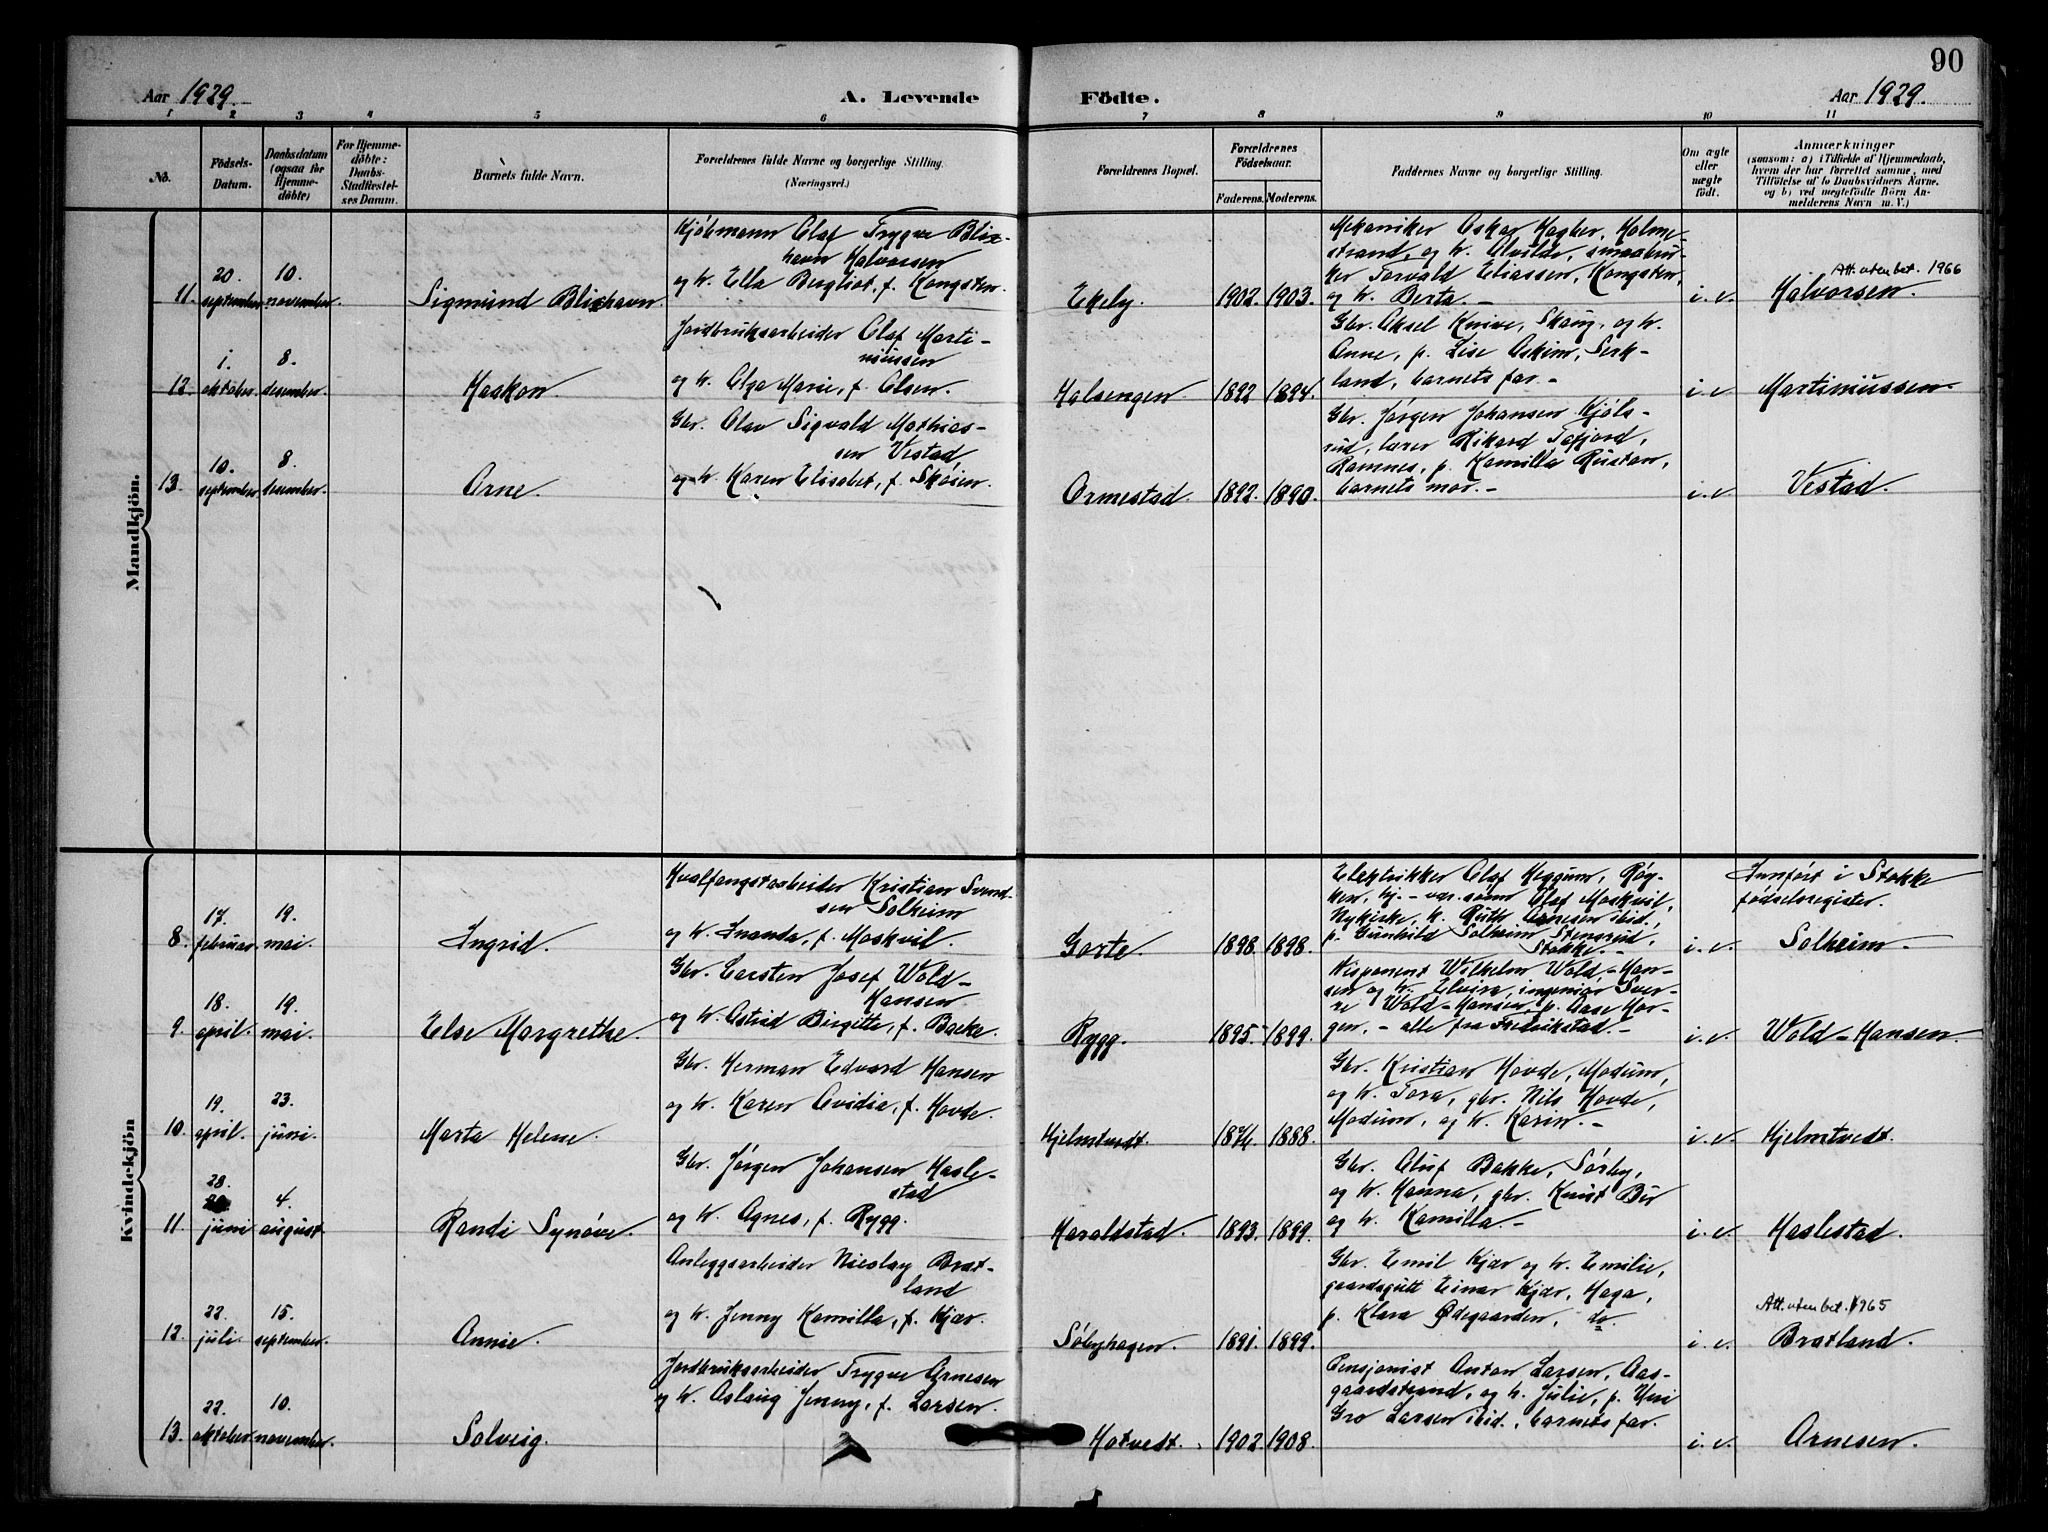 90
Aar 1929.
A. Levende Födte.
Aar 1929.
1 2 3 4 5 6 7 8 9 10 11
No.
Födsels-
Datum.
Daabsdatum
(ogsaa for
Hjemme-
döbte)
For Hjemme-
döbte:
Daabs-
Stadfæstel-
ses Datum.
Barnets fulde Navn.
Forældrenes fulde Navne og borgerlige Stilling.
(Næringsvei.)
Forældrenes Bopæl.
Forældrenes
Födselsaar.
Faderens. Moderens.
Faddernes Navne og borgerlige Stilling.
Om ægte
eller
uægte
födt.
Anmærkninger
(saasom: a) i Tilfælde af Hjemmedaab,
hvem der har forrettet samme, med
Tilföielse af to Daabsvidners Navne.
og b) ved uegtefödte Börn An-
melderens Navn m. V.)
Mandkjön.
11.
20.
september.
10.
november.
Sigmund Blixhavn.
Kjöbmann Olaf Trygve Blix-
havn Halvorsen
og h. Ella Bergliot, f. Kongsten.
Ekely.
1902. 1903.
Mekaniker Oskar Hagher, Holme-
strand, og h. Alvilde, smaabru-
ker Torvald Eliassen, Kongsten,
og h. Berta. –
i.e.
Att. uten bet. 1966
Halvorsen.
12.
1.
oktober.
8.
desember.
Haakon.
Jordbruksarbeider Olaf Marti-
niussen
og h. Olga Marie, f. Olsen.
Holsengen.
1892 1894.
Gbr. Aksel Knive, Skaug, og h.
Anne, p. Lise Askim, Serk-
land, barnets far. –
i.e.
Martiniussen.
13.
10.
september.
8.
desember.
Arne.
Gbr. Olav Sigvald Mathias-
sen Vestad
og h. Karen Elisabet, f. Skøien.
Ormestad.
1892. 1890.
Gbr. Jørgen Johansen Kjøls-
rud, lærer Rikard Tafjord,
Ramnes, p. Kamilla Rustan,
barnets mor. –
i.e.
Vestad.
Kvindekjön
8.
17.
februar.
19.
mai.
Ingrid.
Hvalfangstarbeider Kristian Svend-
sen Solheim
og h. Inanda, f. Moskvil.
Gorte.
1898. 1898.
Elektrikker Olaf Heggum, Røy-
ken, hj. – var. sønn Olaf Moskvil,
Nykirke, h. Ruth Arnesen ibid,
p. Gunhild Solheim Stensrud,
Stokke. –
i.e.
Innført i Stokke
fødselsregister.
Solheim.
9.
18.
april.
19.
mai.
Else Margrethe.
Gbr. Carsten Josef Wold-
Hansen
og h. Astrid Birgitte, f. Backe.
Rygg.
1895. 1899.
Disponent Wilhelm Wold-Han-
sen og h. Elvira, ingeniør Sver-
re Wold-Hansen, p. Aase Hor-
gen, – alle fra Fredrikstad. –
i.e.
Wold-Hansen.
10.
19.
april.
23.
juni.
Marta Helene.
Gbr. Herman Edvard Hansen
og h. Karen Ovidia, f. Hovde.
Hjelmtvedt.
1874. 1888.
Gbr. Kristian Hovde, Modum,
og h. Tora, gbr. Nils Hovde,
Modum, og h. Karin. –
i.e.
Hjelmtvedt.
11.
28.
juni
4.
august.
Randi Synøve.
Gbr. Jørgen Johansen Hasle-
stad
og h. Agnes, f. Rygg.
Haraldstad.
1893. 1899.
Gbr. Oluf Bakke, Sørby,
og h. Hanna, gbr. Knut Bu
og h. Kamilla. –
i.e.
Haslestad.
12.
22.
juli.
15.
september.
Annie.
Anleggsarbeider Nicolay Brat-
land
og h. Jenny Kamilla, f. Kjær.
Søbyhagen.
1891. 1899.
Gbr. Emil Kjær og h. Emilie,
gaardsgutt Einar Kjær, Haga,
p. Klara Ødegaarden, do.
i.e.
Att. uten bet. 1965
Bratland.
13.
22.
oktober.
10.
november.
Solveig.
Jordbruksarbeider Trygve Arnesen
og h. Aslaug Jenny, f. Larsen.
Hotvedt.
1902. 1908.
Pensjonist Anton Larsen, Aas-
gaardstrand, og h. Julie, p. Uni
Gro Larsen ibid., barnets far.
i.e.
Arnesen.